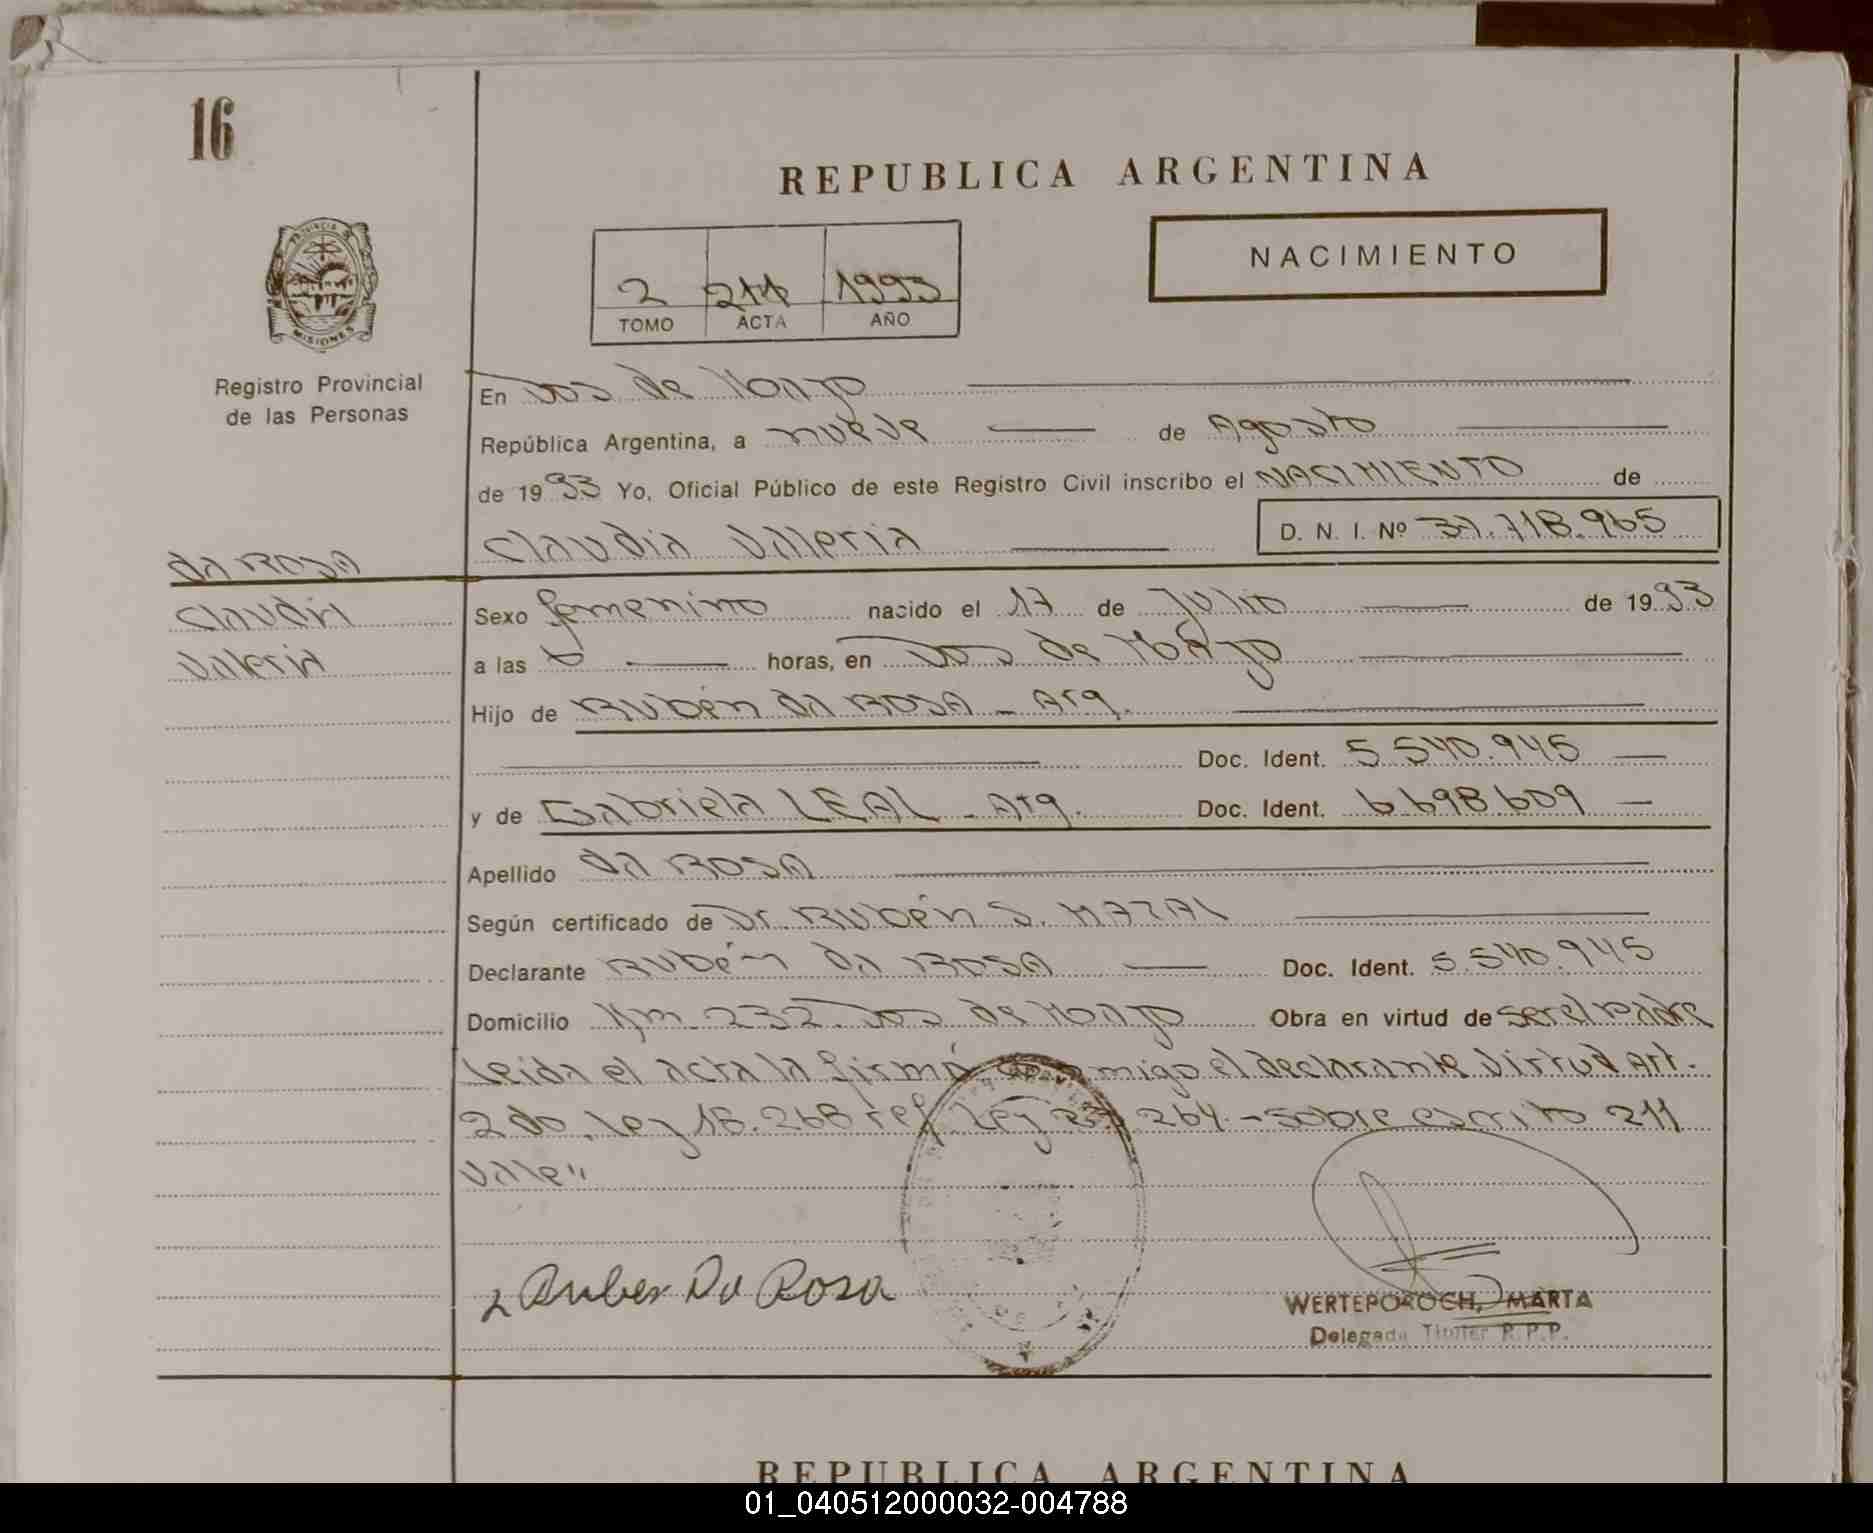 16
REPUBLICA ARGENTINA
NACIMIENTO
2 211 1993
TOMO ACTA AÑO
PROVINCIA DE MISIONES
Registro Provincial
de las Personas
En Dos de Mayo
República Argentina, a nueve de Agosto
de 1993 Yo, Oficial Público de este Registro Civil inscribo el NACIMIENTO de
Claudia Valeria D. N. I. Nº 37.718.965
da ROSA
Claudia
Valeria
Sexo femenino nacido el 17 de Julio de 1993
a las 6 horas, en Dos de Mayo
Hijo de Rubén da ROSA - Arg.
Doc. Ident. 5.540.945
y de Gabriela LEAL - Arg. Doc. Ident. 6.698.609
Apellido da ROSA
Según certificado de Dr. Rubén S. MAZAL
Declarante Rubén da ROSA Doc. Ident. 5.540.945
Domicilio Km. 232 Dos de Mayo Obra en virtud de ser el padre
Leida el acta la firmó conmigo el declarante Virtud Art.
2do. Ley 18.268 ref. Ley 23.264.- sobre escrito 211
Vale"
Ruben Da Rosa
WERTEPOROCH, MARTA
Delegada Titular R.P.P.
REPUBLICA ARGENTINA
01_040512000032-004788